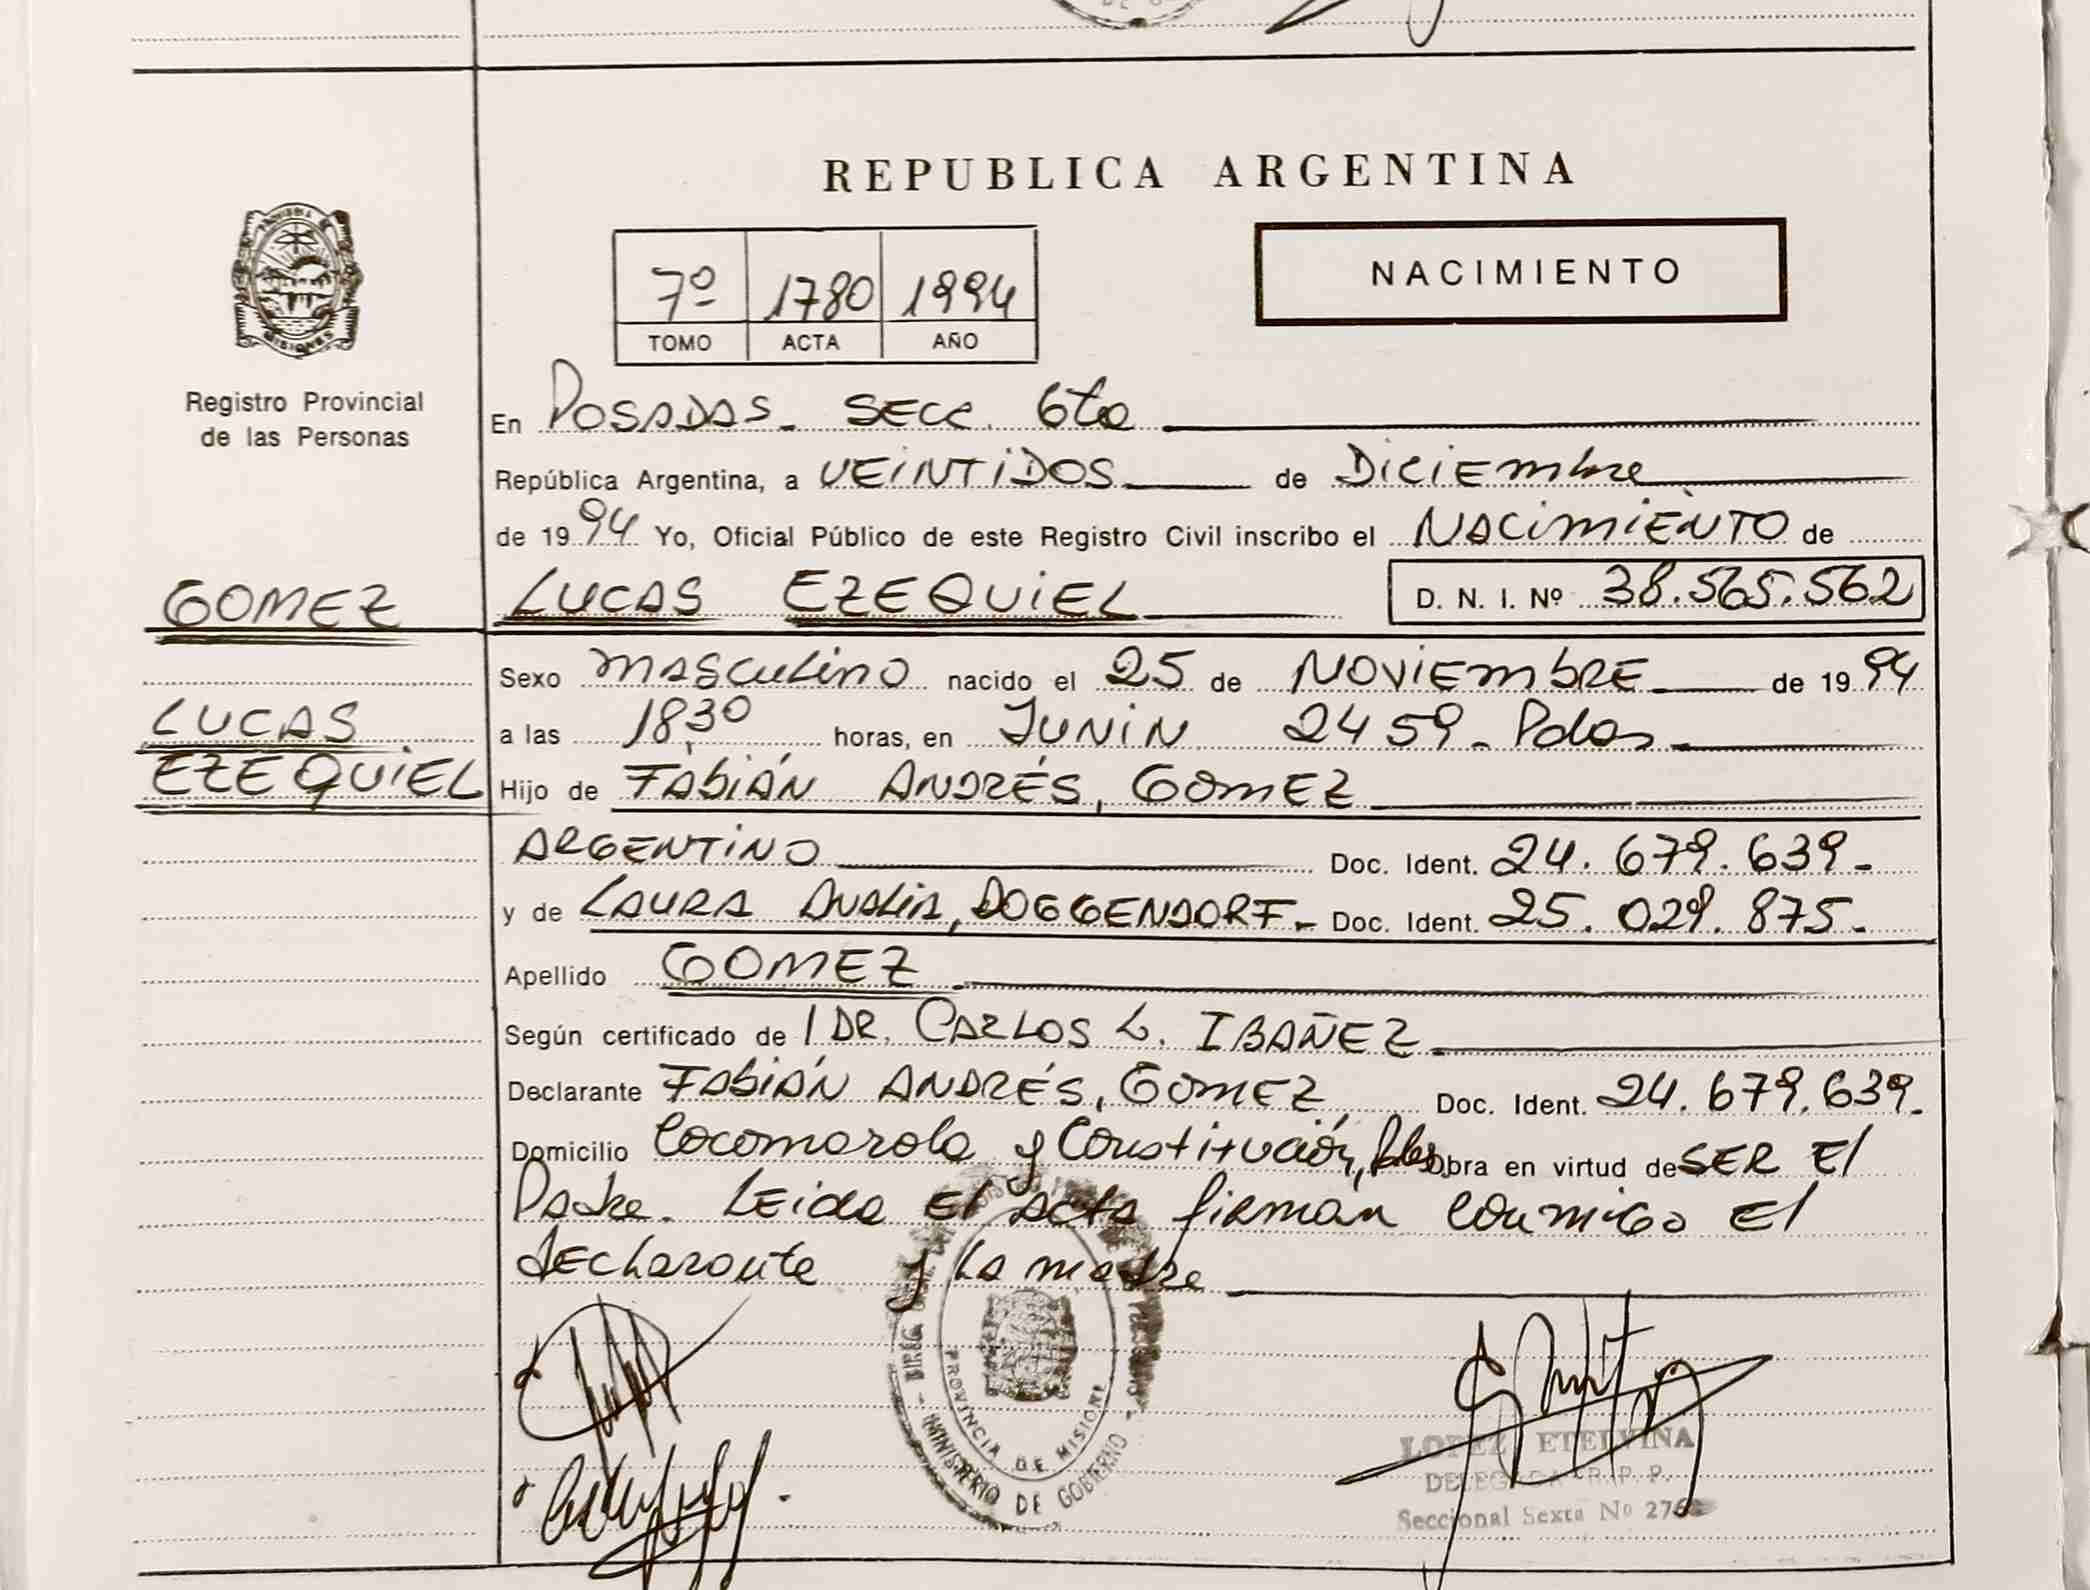 REPUBLICA ARGENTINA
MISIONES
Registro Provincial
de las Personas
7º 1780 1994
TOMO ACTA AÑO
NACIMIENTO
En POSADAS - SECC. 6ta
República Argentina, a VEINTIDOS de Diciembre
de 1994 Yo, Oficial Público de este Registro Civil inscribo el NACIMIENTO de
GOMEZ
LUCAS EZEQUIEL D. N. I. Nº 38.565.562
Sexo masculino nacido el 25 de NOVIEMBRE de 1994
LUCAS
EZEQUIEL
a las 18,30 horas, en JUNIN 2459 - Pdas
Hijo de FABIÁN ANDRÉS, GOMEZ
ARGENTINO Doc. Ident. 24.679.639.-
y de LAURA ANALIA, DOGGENDORF - Doc. Ident. 25.029.875.-
Apellido GOMEZ
Según certificado de / DR. CARLOS L. IBAÑEZ
Declarante FABIÁN ANDRÉS, GOMEZ Doc. Ident. 24.679.639.
Domicilio Cocomarola y Constitución, Pdas Obra en virtud de SER El
Padre. Leida El acta firman conmigo El
declarante y la madre
PROVINCIA DE MISIONES
MINISTERIO DE GOBIERNO
LOPEZ ETELVINA
DELEGADA R.P.P.
Seccional Sexta Nº